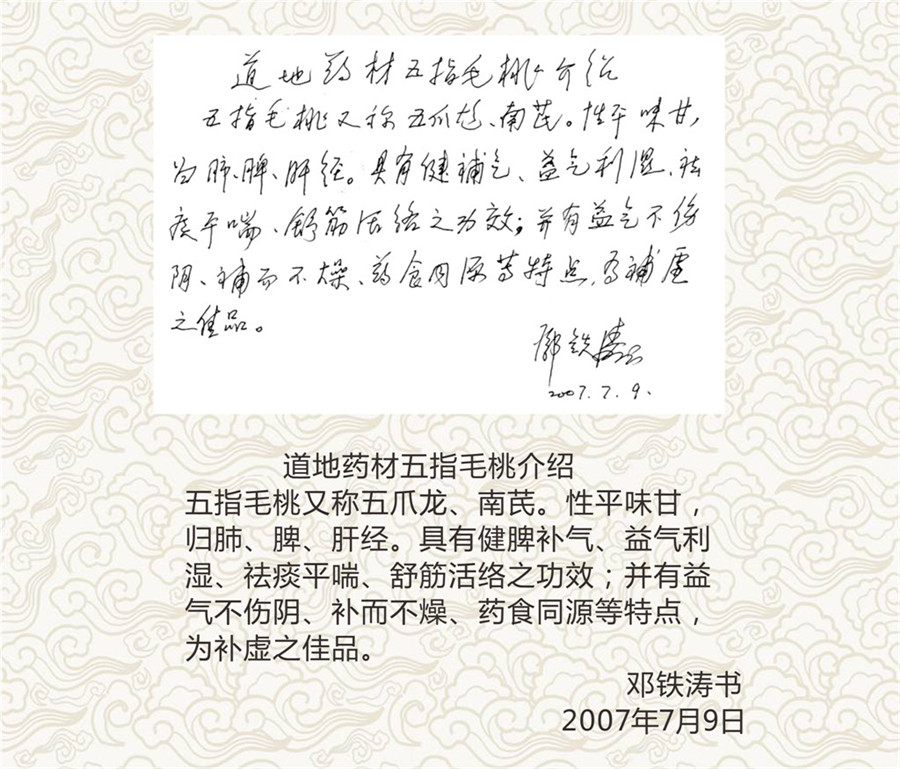 道地药材五指毛桃介绍
五指毛桃又称五爪龙、南芪。性平味甘,
为肺、脾、肝经。具有健补气、益气利湿、祛
痰平喘、舒筋活络之功效；并有益气不伤
阴、补而不燥、药食同源等特点,为补虚
之佳品。
邓铁涛
2007.7.9.
道地药材五指毛桃介绍
五指毛桃又称五爪龙、南芪。性平味甘，
归肺、脾、肝经。具有健脾补气、益气利
湿、祛痰平喘、舒筋活络之功效；并有益
气不伤阴、补而不燥、药食同源等特点，
为补虚之佳品。
邓铁涛书
2007年7月9日